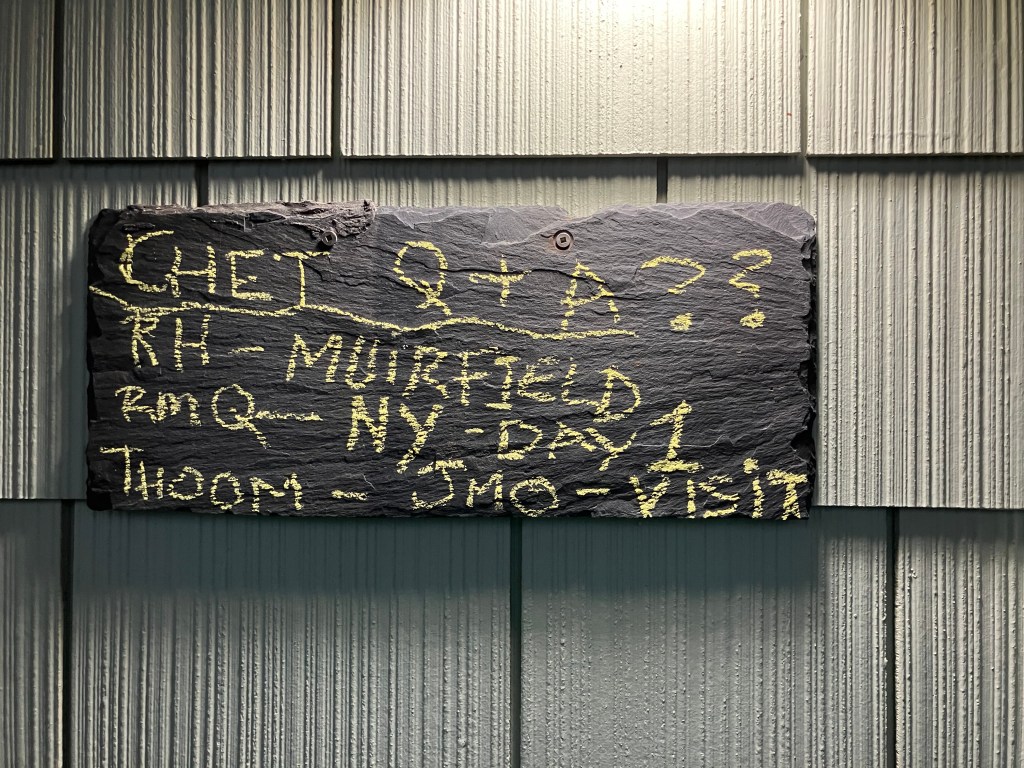 CHET Q + A ??
RH - MUIRFIELD
RMQ - NY - DAY 1
THOOM - JMO - VISIT